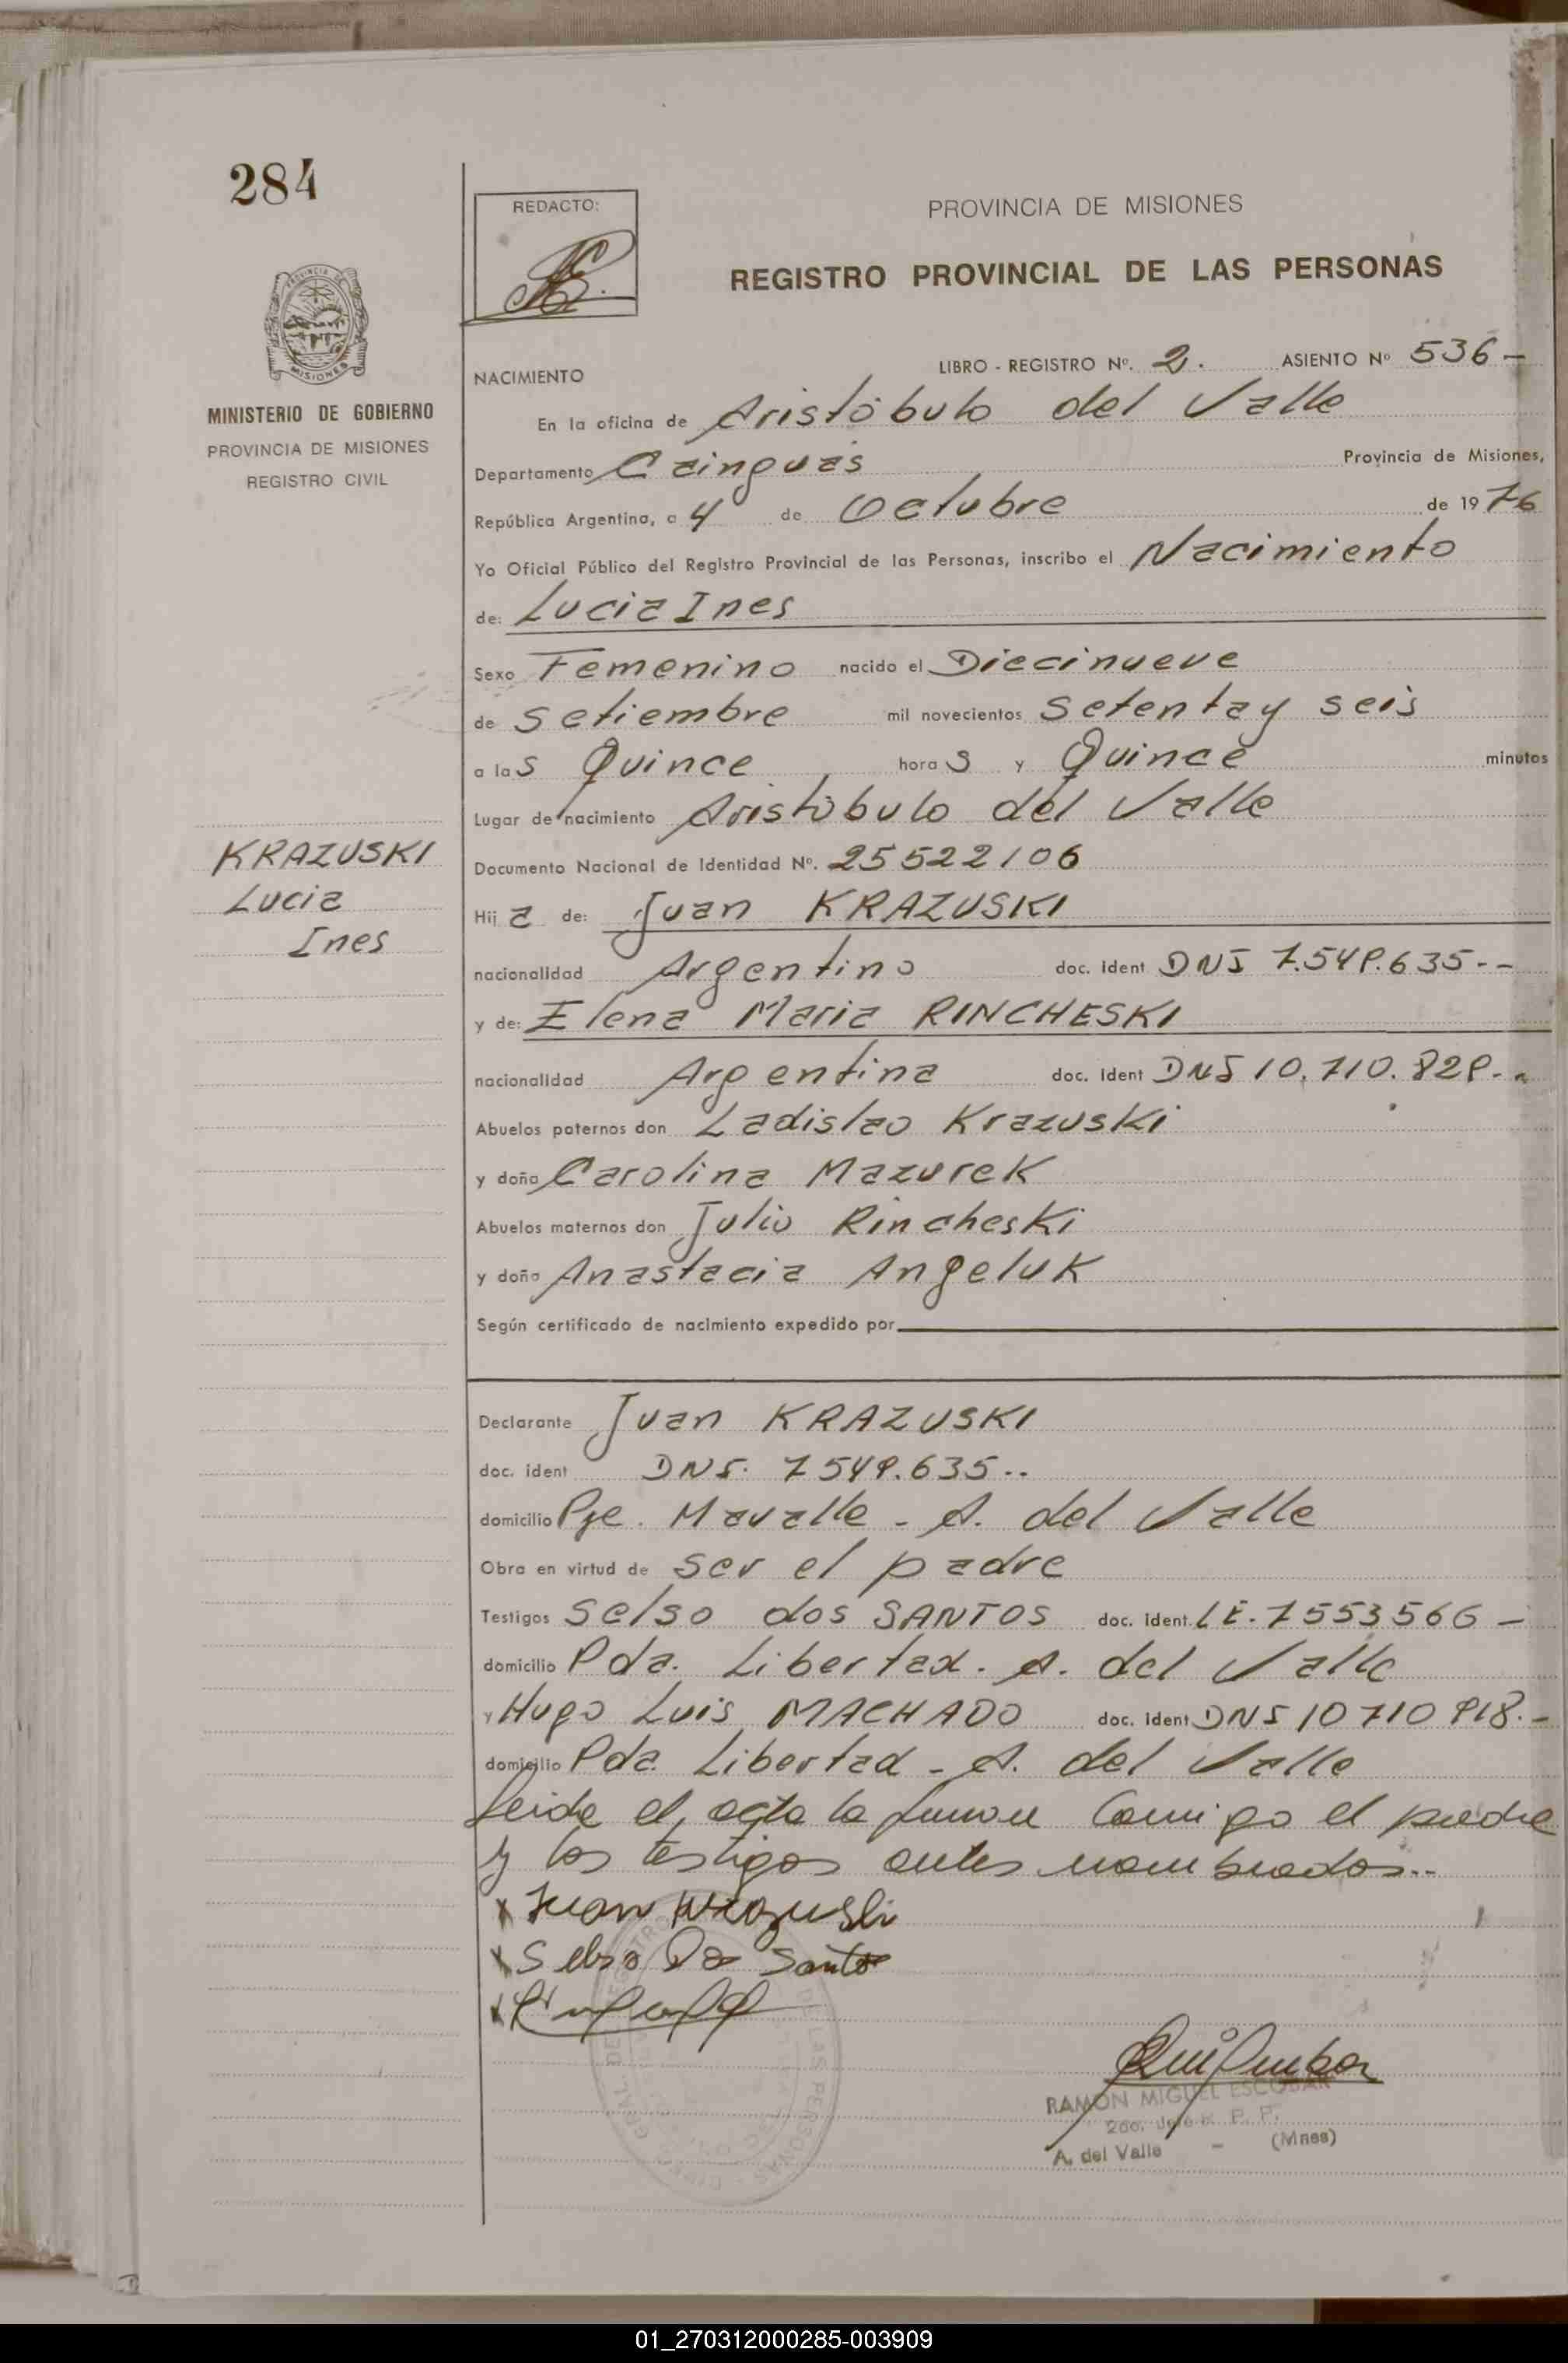 284
REDACTO:
PROVINCIA DE MISIONES
REGISTRO PROVINCIAL DE LAS PERSONAS
PROVINCIA DE
MISIONES
MINISTERIO DE GOBIERNO
PROVINCIA DE MISIONES
REGISTRO CIVIL
NACIMIENTO LIBRO - REGISTRO Nº. 2. ASIENTO Nº 536 -
En la oficina de Aristóbulo del Valle
Departamento Cainguás Provincia de Misiones,
República Argentina, a 4 de Octubre de 1976
Yo Oficial Público del Registro Provincial de las Personas, inscribo el Nacimiento
de: Lucia Ines
Sexo Femenino nacido el Diecinueve
de Setiembre mil novecientos Setenta y seis
a las Quince horas y Quince minutos
Lugar de nacimiento Aristóbulo del Valle
Documento Nacional de Identidad Nº. 25522106
KRAZUSKI
Lucia
Ines
Hija de: Juan KRAZUSKI
nacionalidad Argentino doc. ident DNI 7.549.635--
y de: Elena Maria RINCHESKI
nacionalidad Argentina doc. ident DNI 10.710.829.-
Abuelos paternos don Ladislao Krazuski
y doña Carolina Mazurek
Abuelos maternos don Julio Rincheski
y doña Anastacia Angeluk
Según certificado de nacimiento expedido por
Declarante Juan KRAZUSKI
doc. ident DNI. 7549.635..
domicilio Pje. Mavalle - A. del Valle
Obra en virtud de ser el padre
Testigos Selso dos SANTOS doc. ident LE. 7553566 -
domicilio Pda. Libertad. A. del Valle
y Hugo Luis MACHADO doc. ident DNI 10710918.-
domicilio Pda. Libertad - A. del Valle
Leida el acta la firman Conmigo el padre
y los testigos antes nombrados..
x Juan Krazuski
x Selso Do Santo
RAMON MIGUEL ESCOBAR
A. del Valle - (Mnes)
01_270312000285-003909